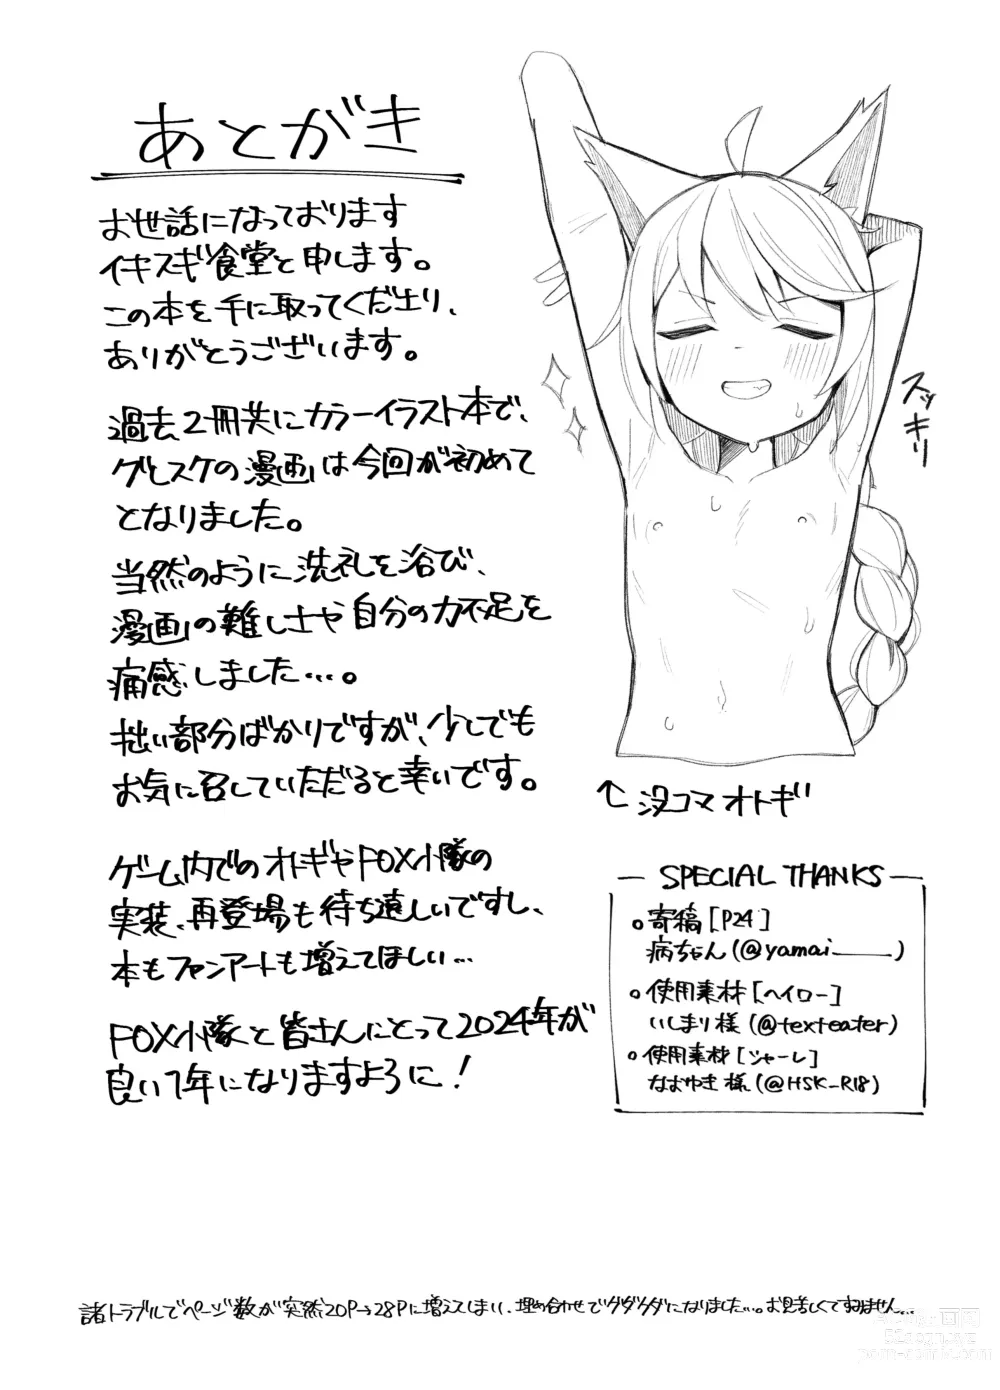 あとがき
お世話になっております
イキスギ食堂と申します。
この本を手に取ってくださり、
ありがとうございます。
過去2冊共にカラーイラスト本で、
グレスケの漫画は今回が初めて
となりました。
当然のように洗礼を浴び、
漫画の難しさや自分の力不足を
痛感しました…。
拙い部分ばかりですが、少しでも
お気に召していただけると幸いです。
ゲーム内でのオトギやFOX小隊の
実装、再登場も待ち遠しいですし、
本もファンアートも増えてほしい…
FOX小隊と皆さんにとって2024年が
良い1年になりますように!
スッキリ
↑没コマオトギ
SPECIAL THANKS
○寄稿[P24]
病ちゃん(@yamai____)
○使用素材[ヘイロー]
いしまり様(@texteater)
○使用素材[シャーレ]
なおゆき様(@HSK_R18)
諸トラブルでページ数が突然20P→28Pに増えてしまい、埋め合わせでグダグダになりました…。お見苦しくてすみません…